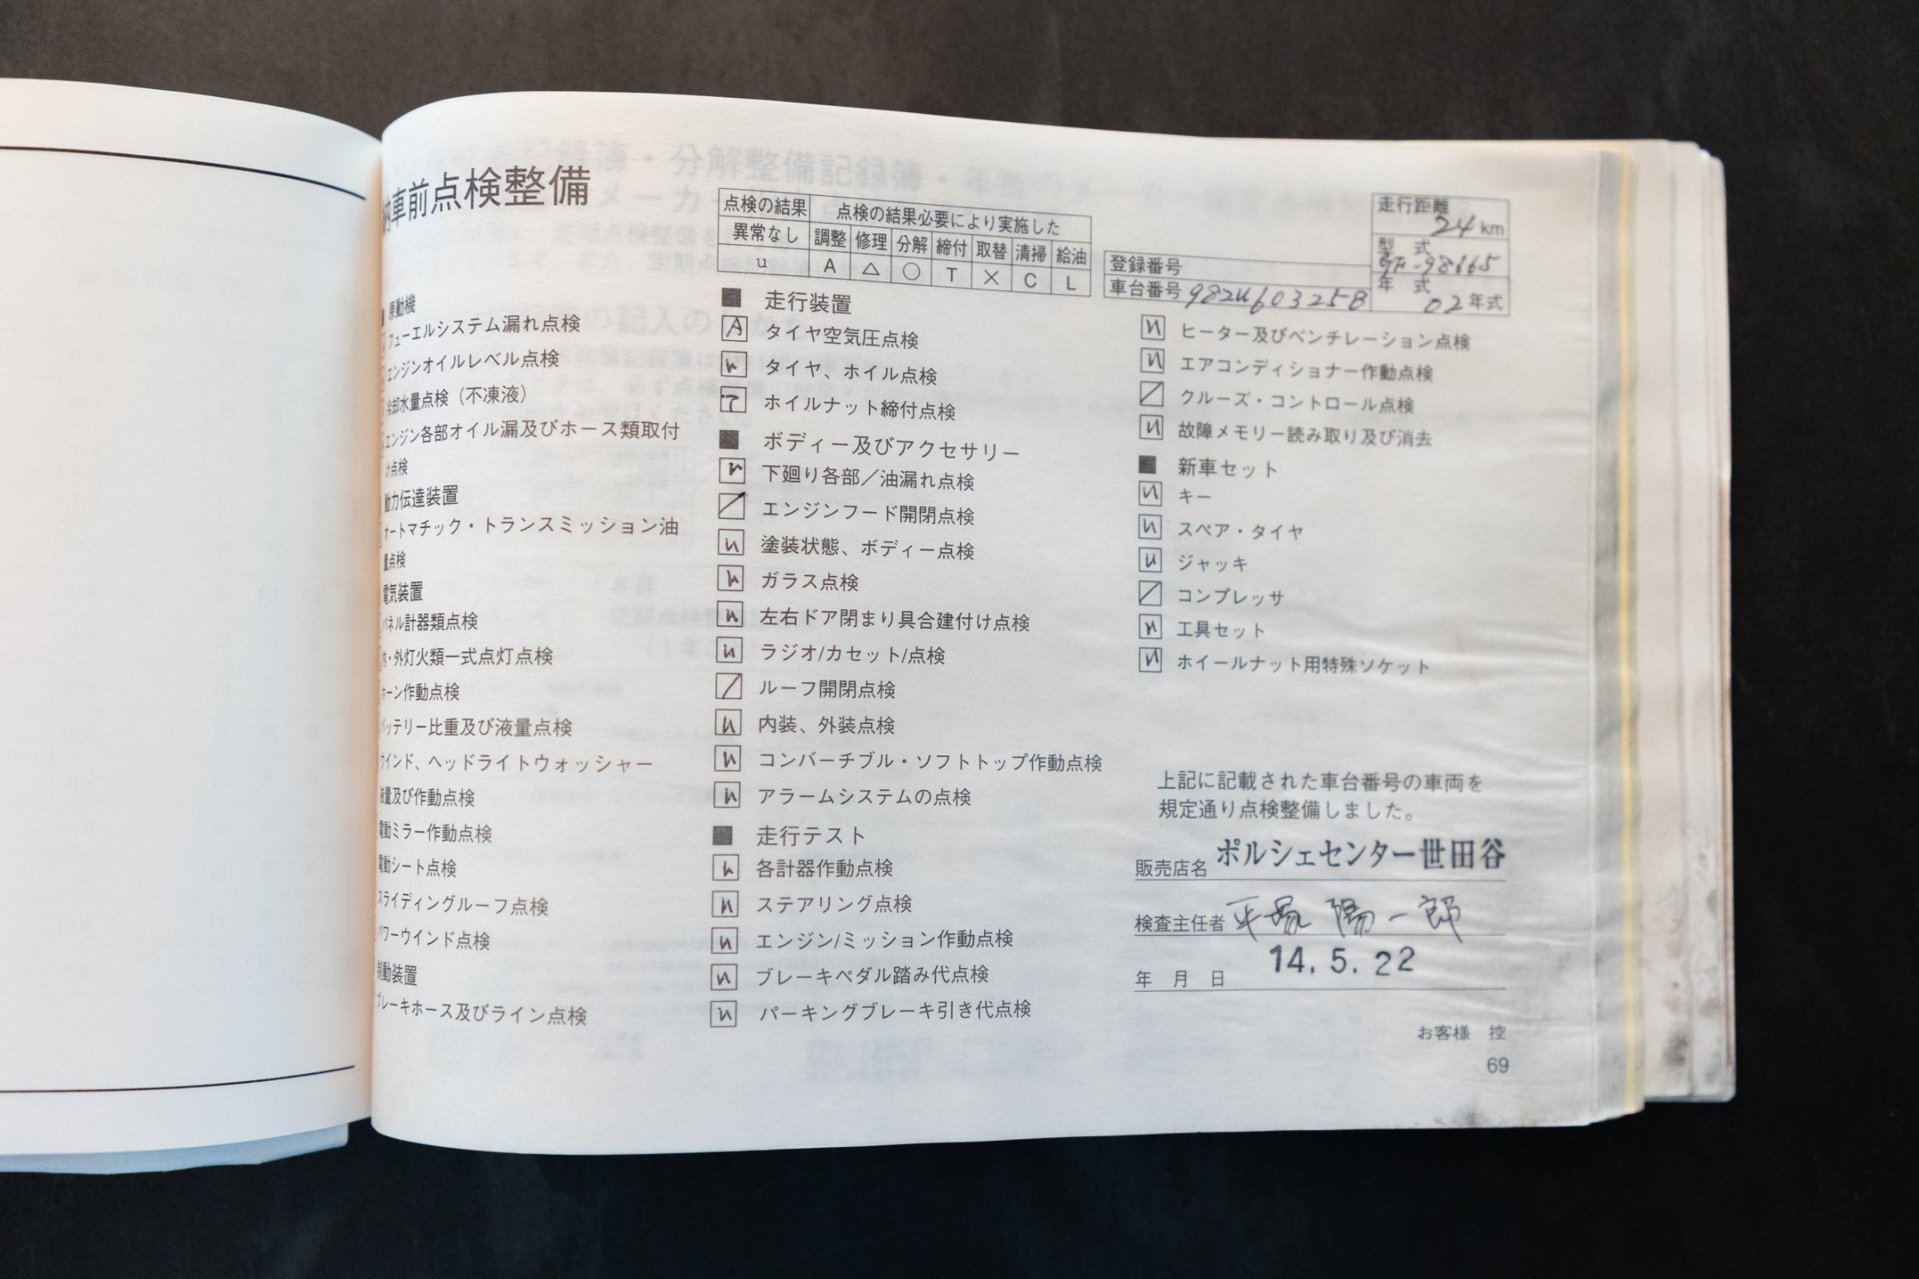 車前点検整備
原動機
フューエルシステム漏れ点検
エンジンオイルレベル点検
冷却水量点検（不凍液）
エンジン各部オイル漏及びホース類取付
け点検
動力伝達装置
オートマチック・トランスミッション油
量点検
電気装置
パネル計器類点検
内・外灯火類一式点灯点検
ホーン作動点検
バッテリー比重及び液量点検
ウインド、ヘッドライトウォッシャー
液量及び作動点検
電動ミラー作動点検
電動シート点検
スライディングルーフ点検
パワーウインド点検
制動装置
ブレーキホース及びライン点検
点検の結果 点検の結果必要により実施した
異常なし 調整 修理 分解 締付 取替 清掃 給油
u A △ ○ T × C L
■ 走行装置
A タイヤ空気圧点検
タイヤ、ホイル点検
T ホイルナット締付点検
■ ボディー及びアクセサリー
下廻り各部／油漏れ点検
エンジンフード開閉点検
塗装状態、ボディー点検
ガラス点検
左右ドア閉まり具合建付け点検
ラジオ/カセット/点検
ルーフ開閉点検
内装、外装点検
コンバーチブル・ソフトトップ作動点検
アラームシステムの点検
■ 走行テスト
各計器作動点検
ステアリング点検
エンジン/ミッション作動点検
ブレーキペダル踏み代点検
パーキングブレーキ引き代点検
走行距離
24 km
型式
年式
02年式
登録番号
車台番号 982U603258
ヒーター及びベンチレーション点検
エアコンディショナー作動点検
クルーズ・コントロール点検
故障メモリー読み取り及び消去
■ 新車セット
キー
スペア・タイヤ
ジャッキ
コンプレッサ
工具セット
ホイールナット用特殊ソケット
上記に記載された車台番号の車両を
規定通り点検整備しました。
販売店名 ポルシェセンター世田谷
検査主任者 平塚 陽一郎
年 月 日 14.5.22
お客様 控
69